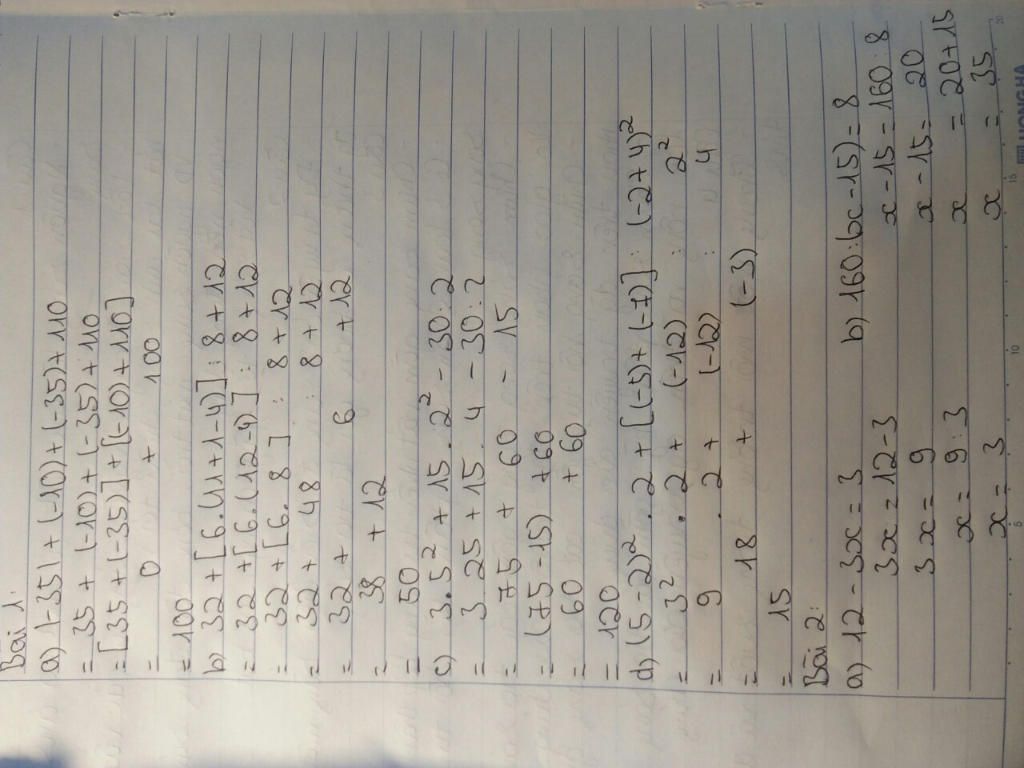 Bài 1:
a) |-35| + (-10) + (-35) + 110
= 35 + (-10) + (-35) + 110
= [35 + (-35)] + [(-10) + 110]
= 0 + 100
= 100
b) 32 + [6.(11+1-4)] : 8 + 12
= 32 + [6.(12-4)] : 8 + 12
= 32 + [6. 8] : 8 + 12
= 32 + 48 : 8 + 12
= 32 + 6 + 12
= 38 + 12
= 50
c) 3.5² + 15.2² - 30:2
= 3 25 + 15. 4 - 30:2
= 75 + 60 - 15
= (75-15) + 60
= 60 + 60
= 120
d) (5-2)².2 + [(-5) + (-7)] : (-2+4)²
= 3².2 + (-12) : 2²
= 9.2 + (-12) : 4
= 18 + (-3)
= 15
Bài 2:
a) 12 - 3x = 3 b) 160:(x-15) = 8
3x = 12-3 x-15 = 160:8
3x = 9 x-15 = 20
x = 9:3 x = 20+15
x = 3 x = 35
HONG HA
5 10 15 20